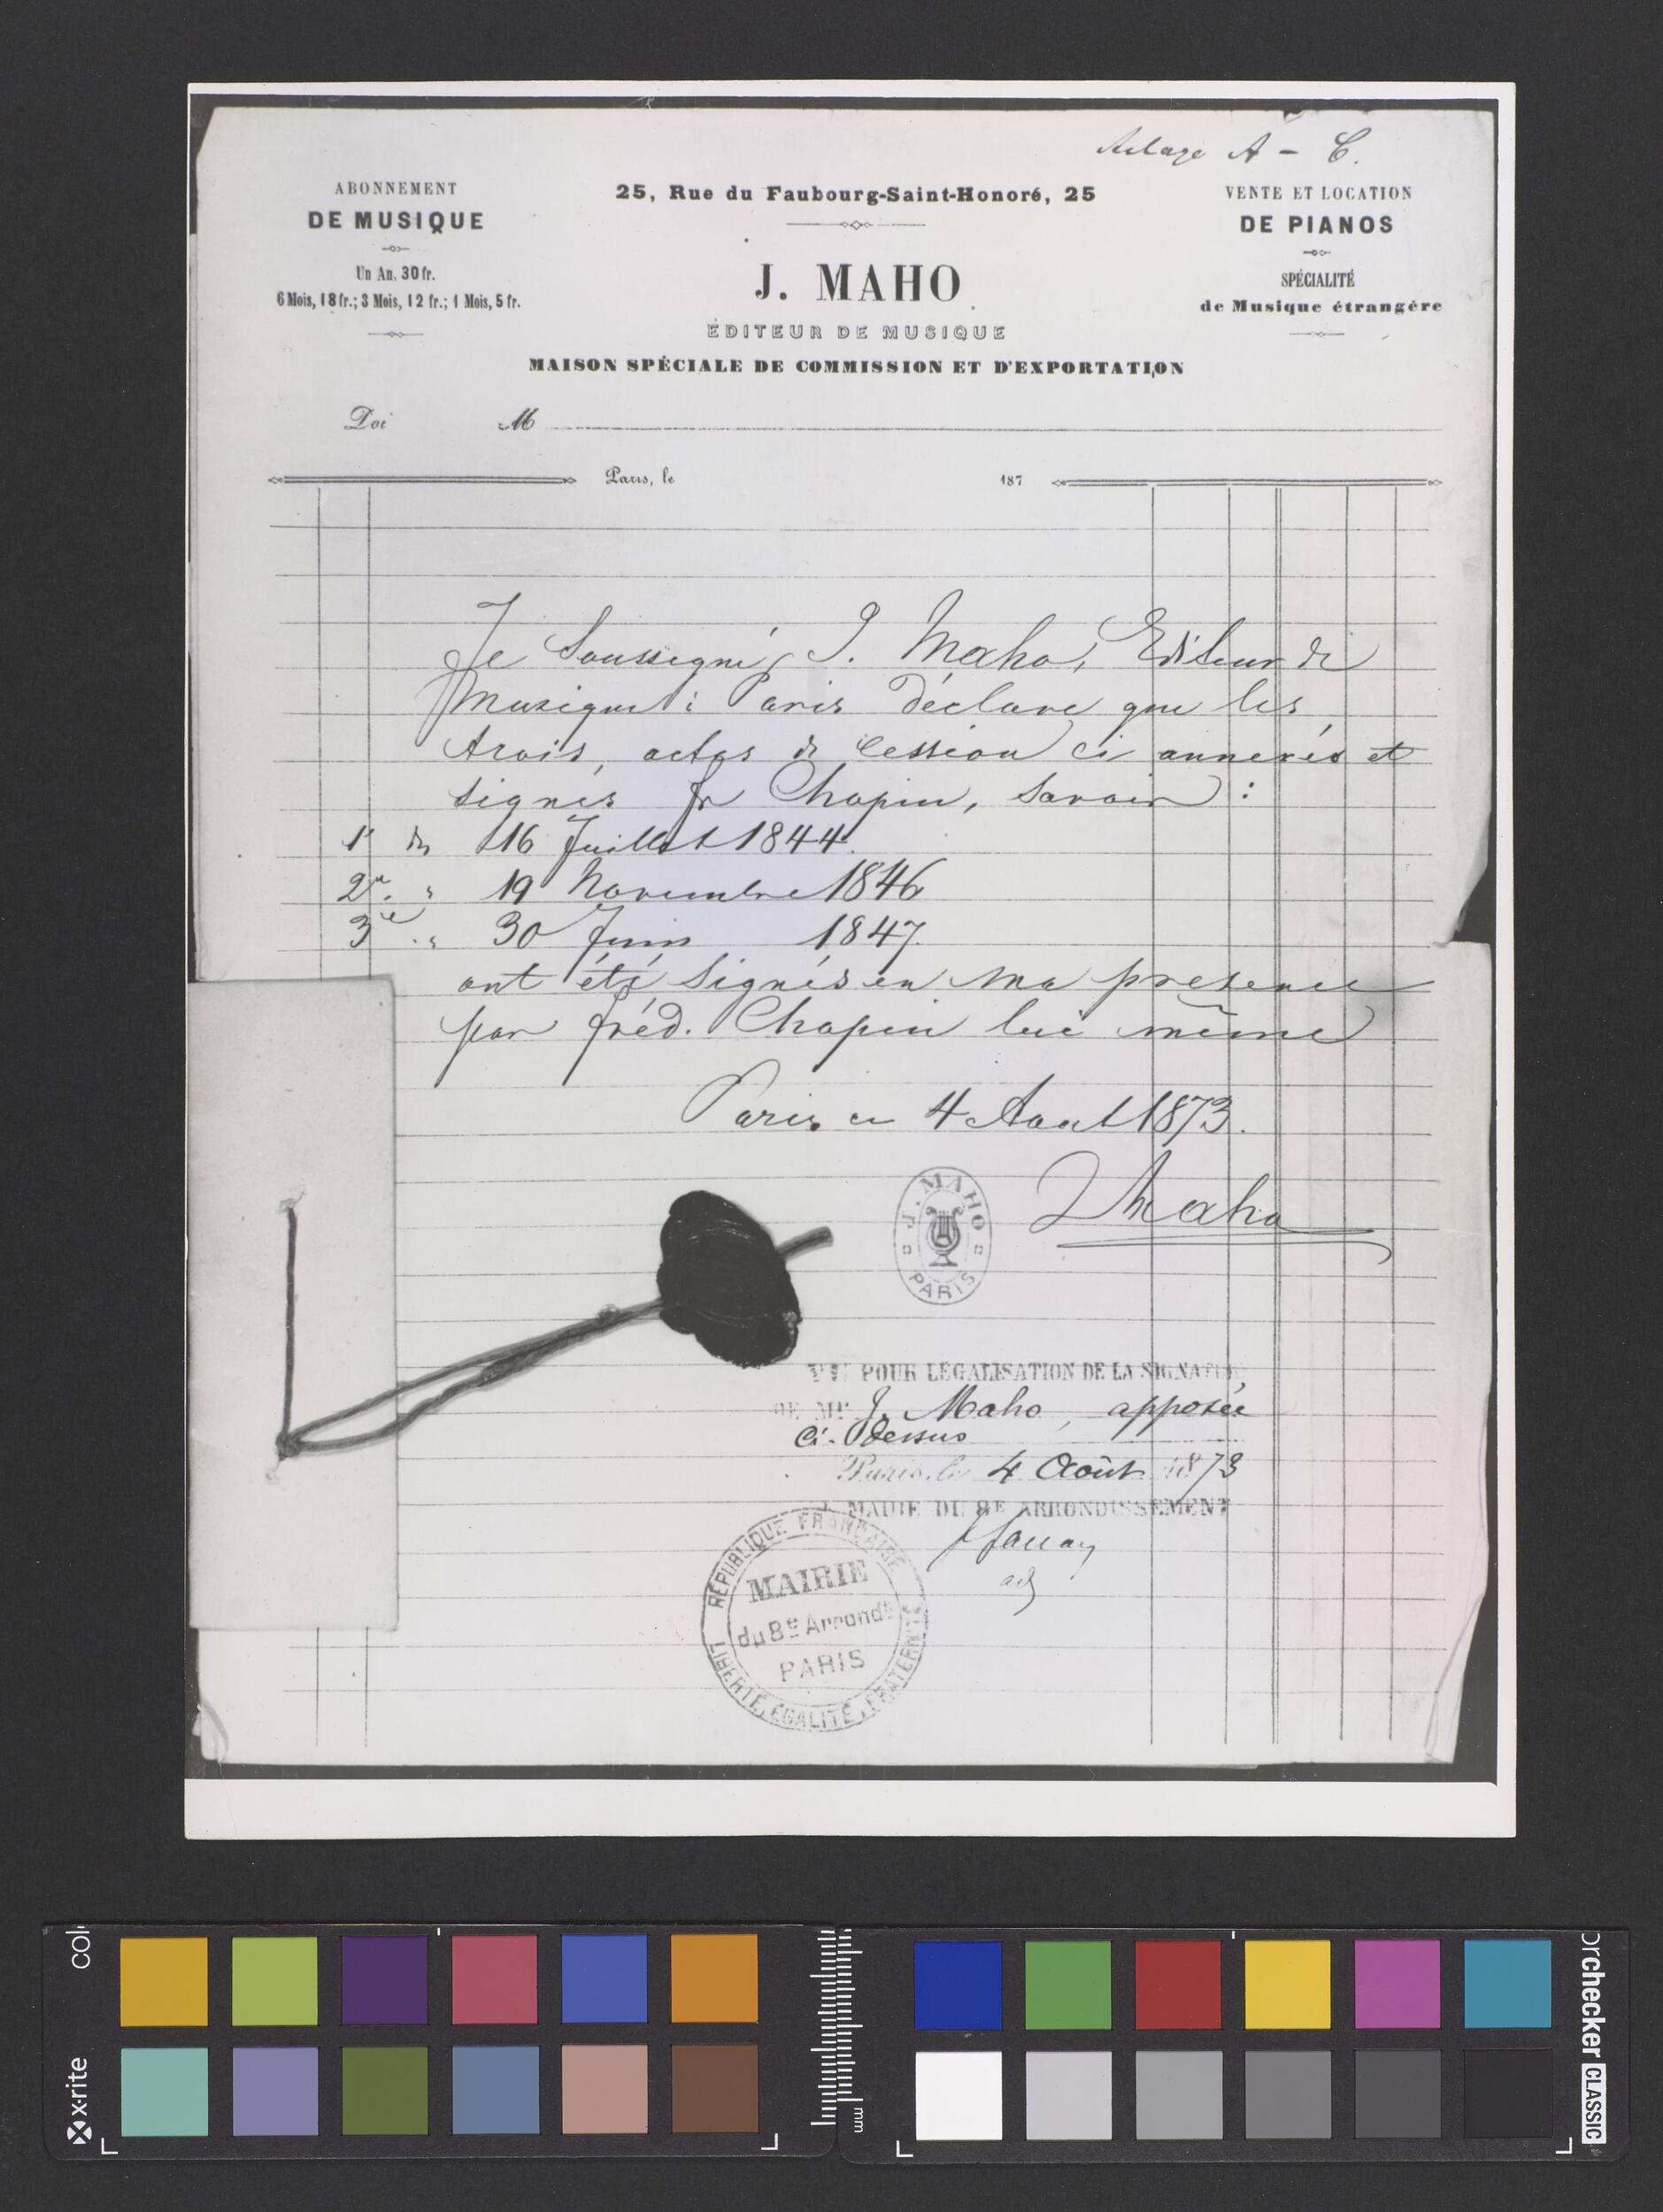 A - C.
ABONNEMENT
DE MUSIQUE
Un An, 30 fr.
6 Mois, 18 fr.; 3 Mois, 12 fr.; 1 Mois, 5 fr.
25, Rue du Faubourg-Saint-Honoré, 25
J. MAHO
ÉDITEUR DE MUSIQUE
MAISON SPÉCIALE DE COMMISSION ET D'EXPORTATION
VENTE ET LOCATION
DE PIANOS
SPÉCIALITÉ
de Musique étrangère
Doi M
Paris, le 187
Je Soussigné, J. Maho, Editeur de
Musique à Paris déclare que les
trois, actes de Cession ci annexés et
signés fr Chopin, Savoir :
1º du 16 Juillet 1844.
2me " 19 Novembre 1846
3me " 30 Juin 1847.
ont été Signés en ma presence
par fréd. Chopin lui même
Paris ce 4 Aout 1873.
J Maho
J. MAHO
PARIS
VU POUR LÉGALISATION DE LA SIGNATURE
DE Mr J. Maho, apposée
Ci-dessus
Paris, le 4 Août 1873
MAIRIE DU 8E ARRONDISSEMENT
adj
RÉPUBLIQUE FRANÇAISE
MAIRIE
du 8e Arrondt
PARIS
LIBERTÉ, ÉGALITÉ, FRATERNITÉ
x-rite
col
mm
orchecker CLASSIC